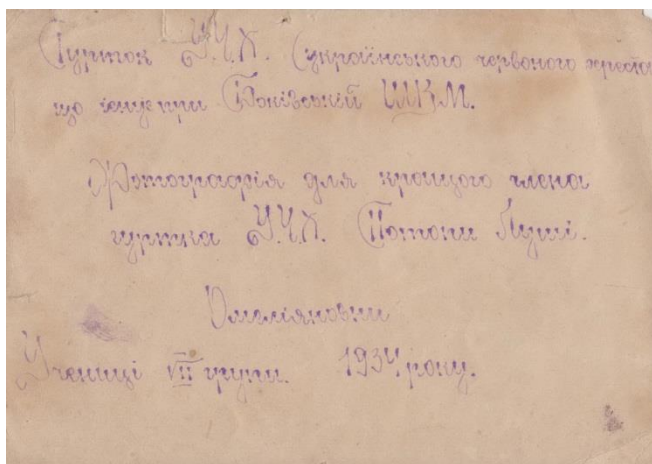 Гурток У.Ч.Х. (українського червоного хреста
що існує при Боківській ШКМ.
Фотографія для кращого члена
гуртка У.Ч.Х. Потапи Луші.
Омеляновни
Учениці VII групи. 1934 року.